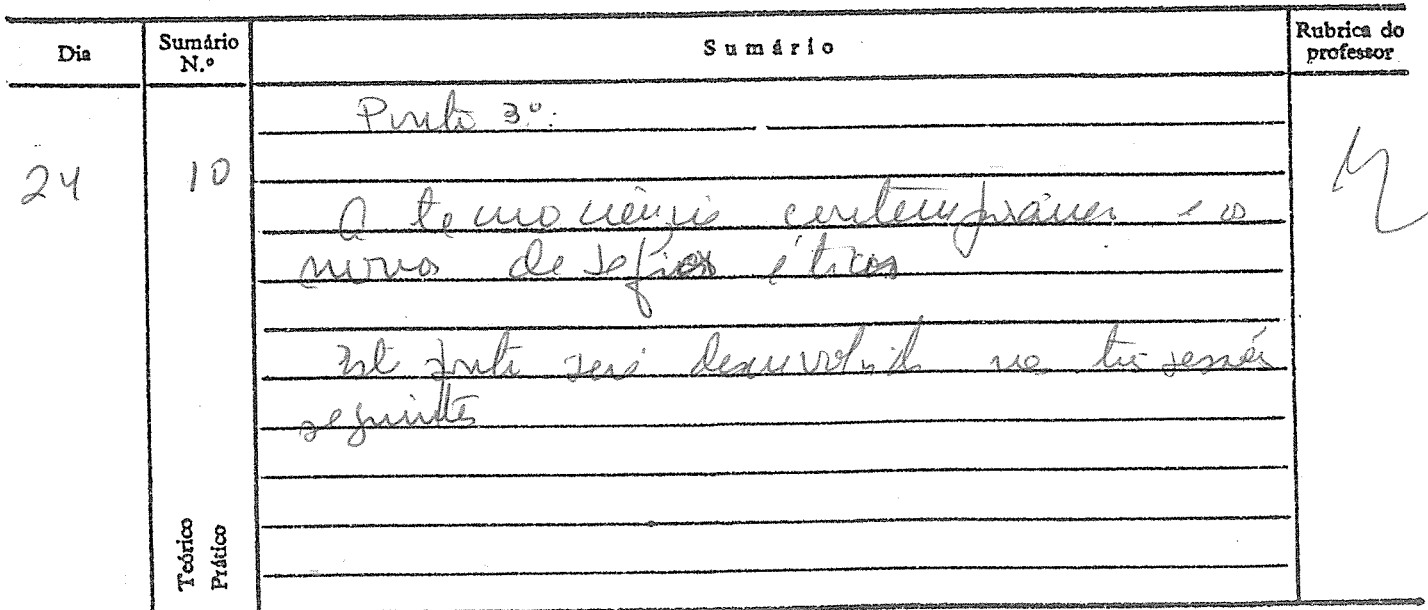 Dia
Sumário N.º
Sumário
Rubrica do professor
24
10
Ponto 3º:
A tecnociência contemporânea e os
novos desafios éticos
Este ponto será desenvolvido nas três sessões
seguintes
Teórico
Prático